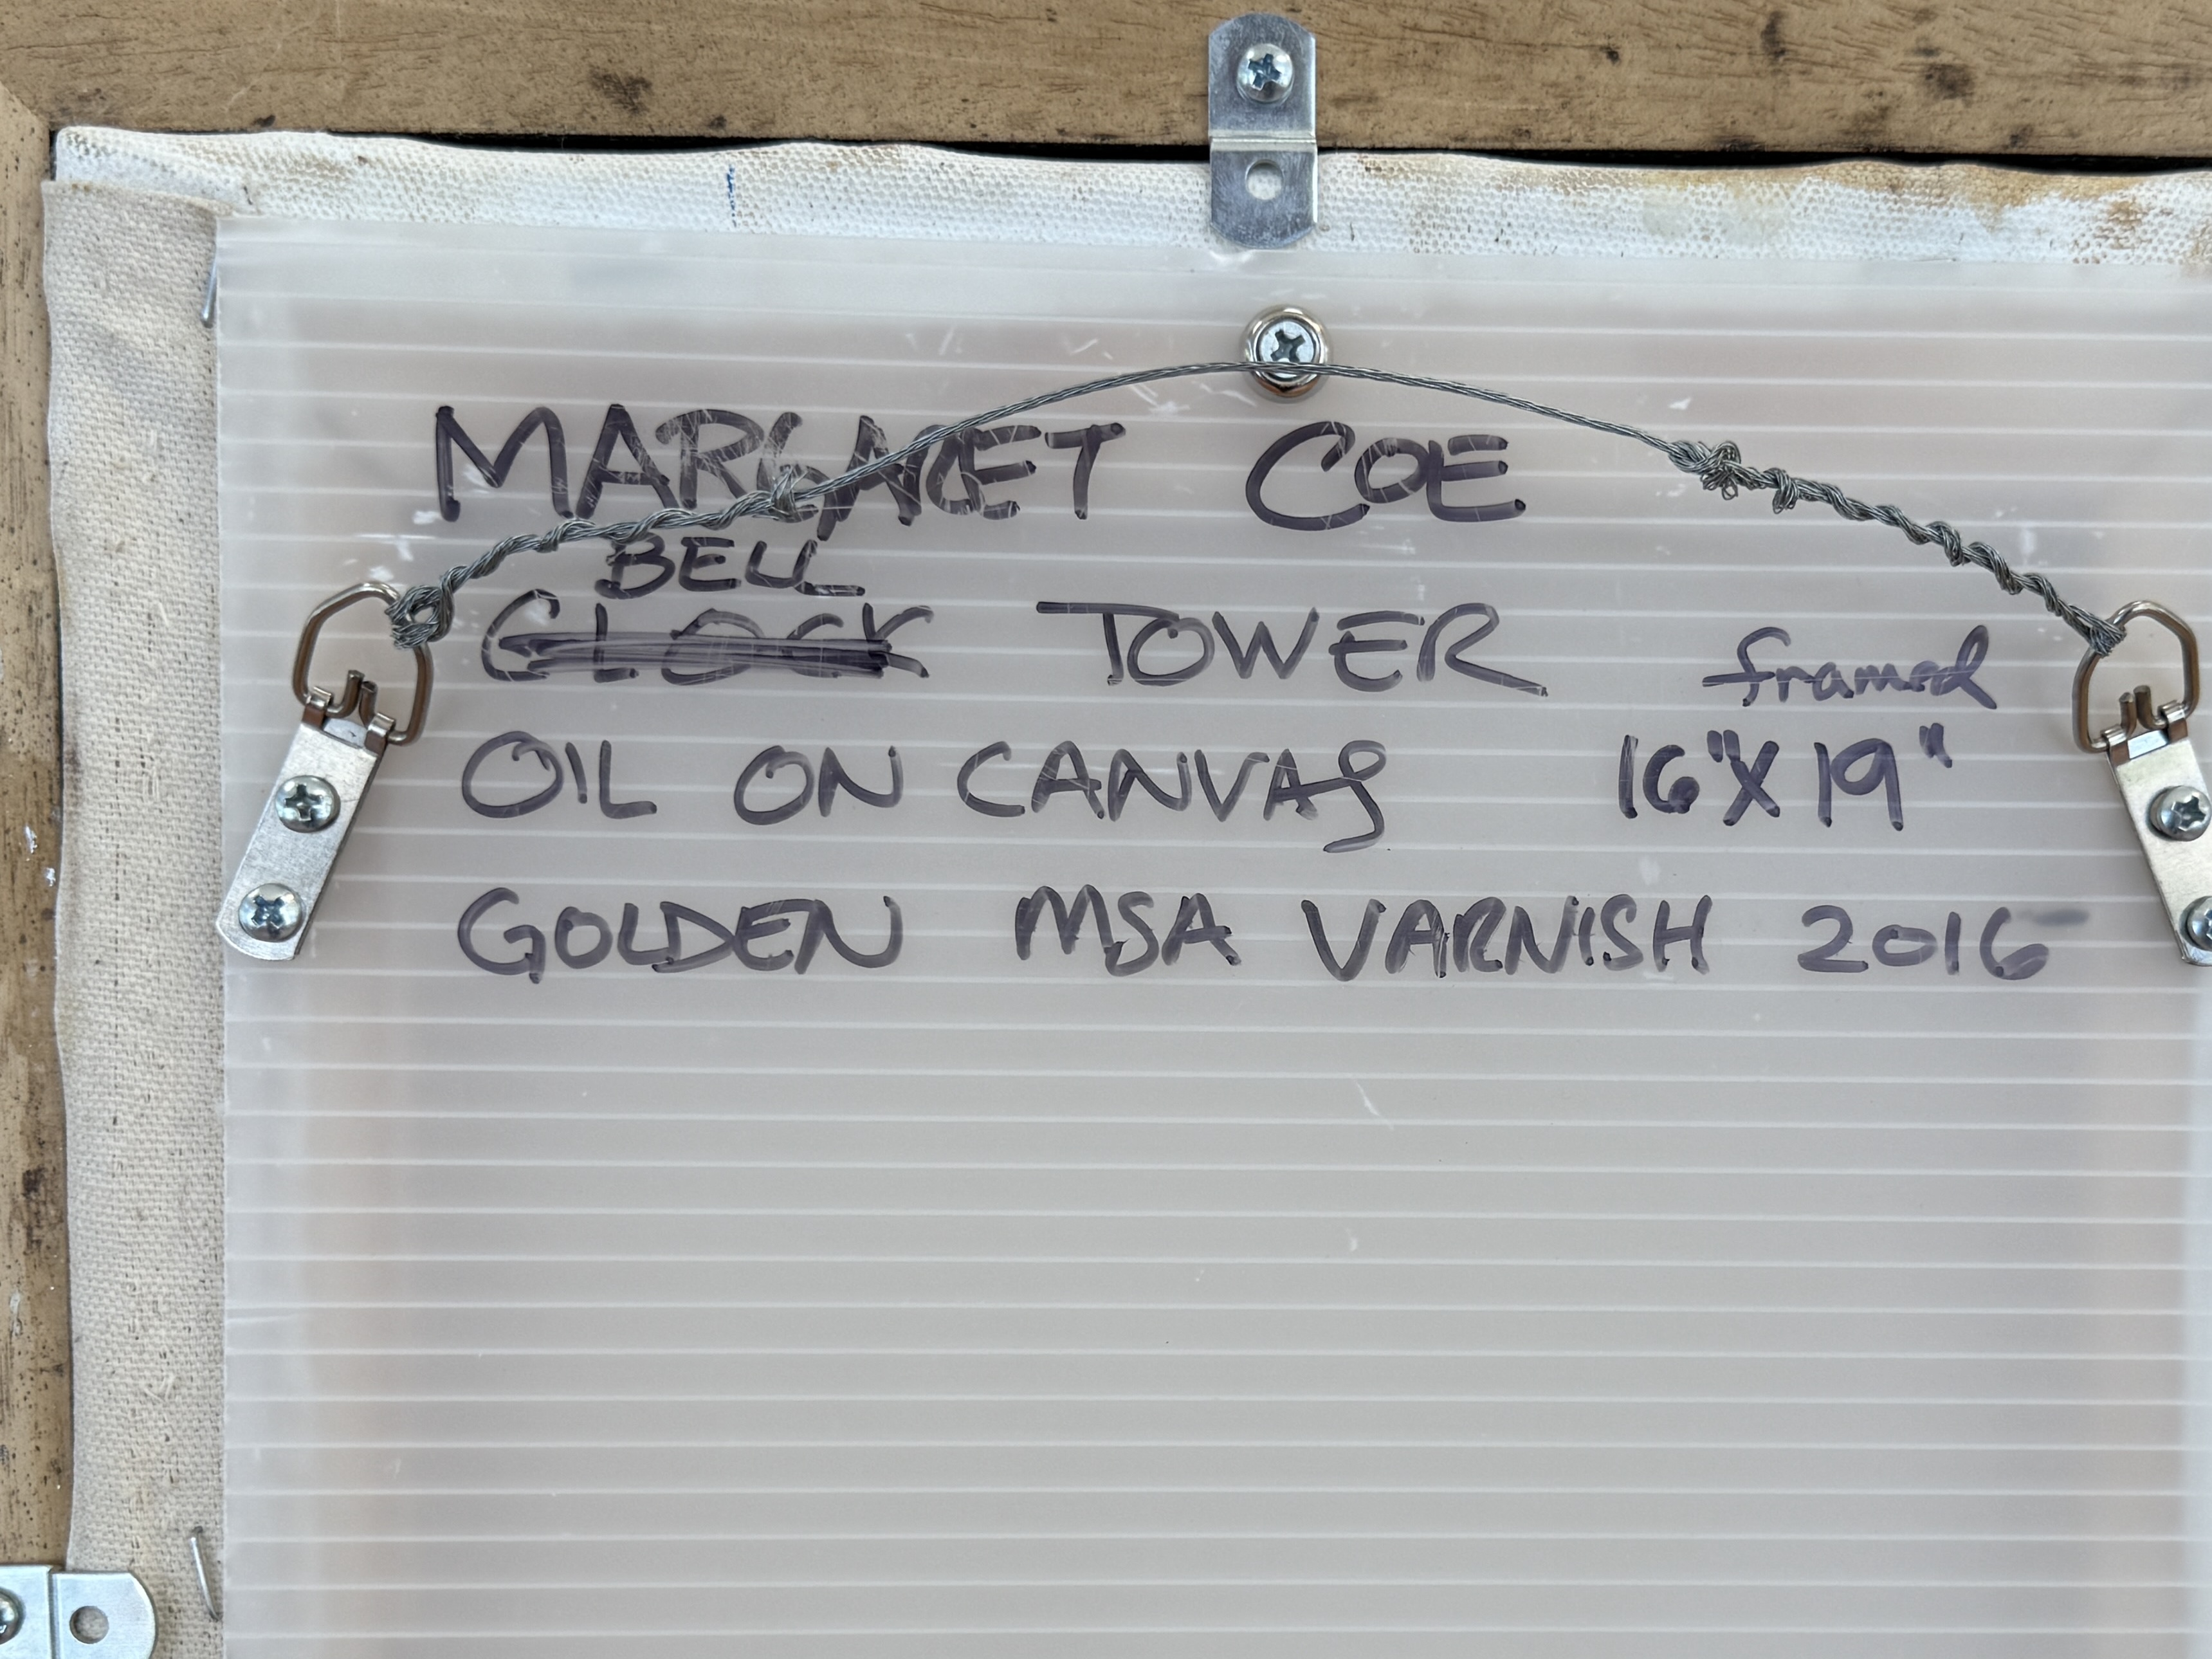 MARGARET COE
BELL
CLOCK TOWER
framed
OIL ON CANVAS 16"X19"
GOLDEN MSA VARNISH 2016